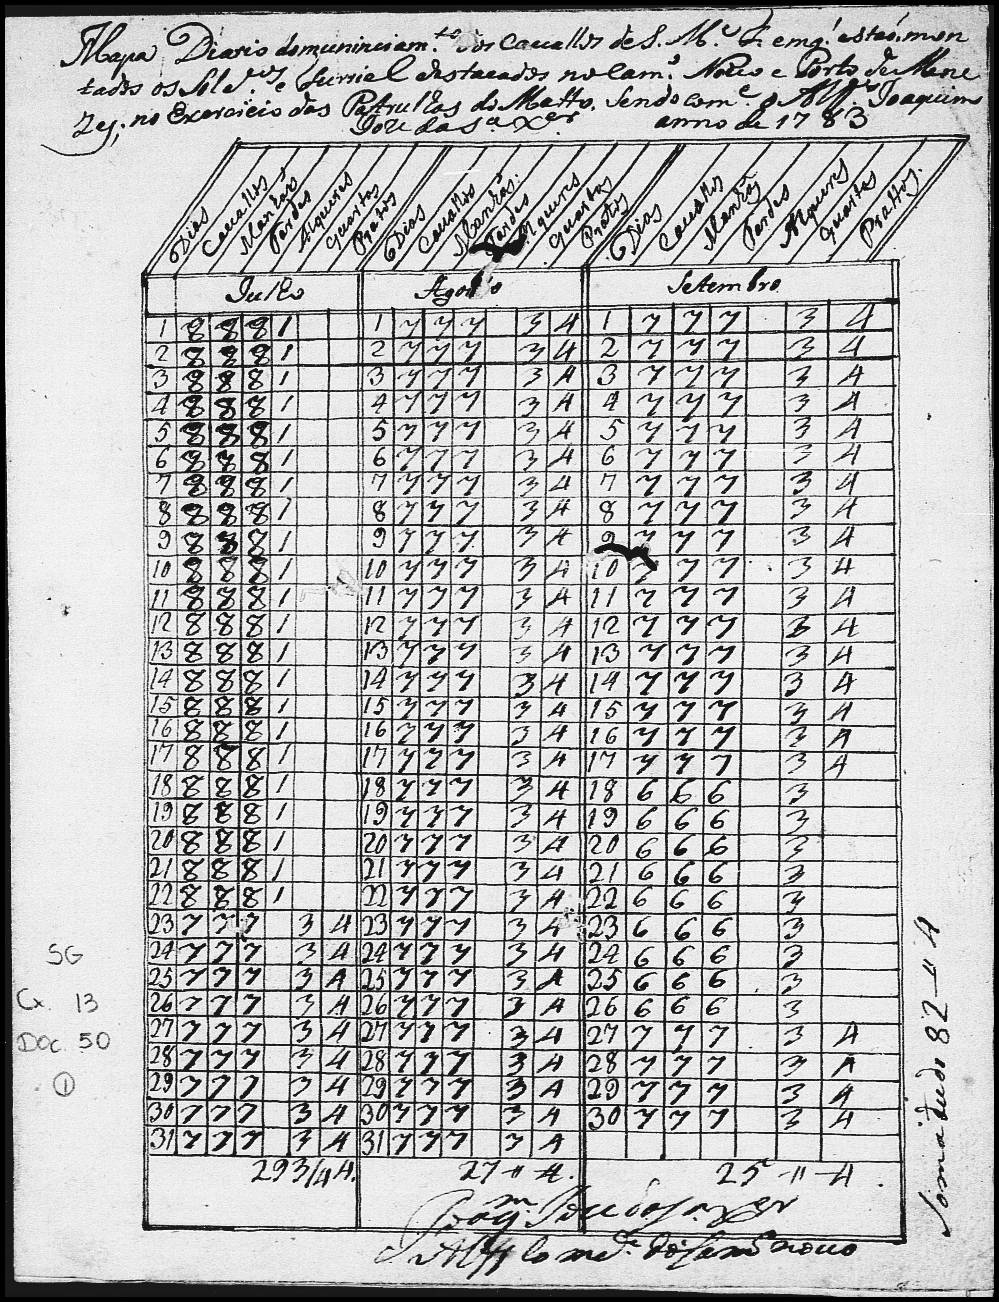 Mapa Diario domuniniciam.to dos Cauallos de S. M.e F. emq.' estaó mon
tados os Sold.os e furriel destacados no Cam.o Nouo e Porto de Mene
zes; no Exercicio das Patrulhas do Matto. Sendo com.e o Alf.es Joaquim
Joze da S.a X.er anno de 1783
Dias Cauallos Manhãs Tardes Alqueres quartas Pratos Dias Cauallos Manhãs Tardes Alqueres quartas Pratos Dias Cauallos Manhãs Tardes Alqueres quartas Prattos
Julho Agosto Setembro
1 8 8 8 1 1 7 7 7 3 4 1 7 7 7 3 4
2 8 8 8 1 2 7 7 7 3 4 2 7 7 7 3 4
3 8 8 8 1 3 7 7 7 3 4 3 7 7 7 3 4
4 8 8 8 1 4 7 7 7 3 4 4 7 7 7 3 4
5 8 8 8 1 5 7 7 7 3 4 5 7 7 7 3 4
6 8 8 8 1 6 7 7 7 3 4 6 7 7 7 3 4
7 8 8 8 1 7 7 7 7 3 4 7 7 7 7 3 4
8 8 8 8 1 8 7 7 7 3 4 8 7 7 7 3 4
9 8 8 8 1 9 7 7 7 3 4 9 7 7 7 3 4
10 8 8 8 1 10 7 7 7 3 4 10 7 7 7 3 4
11 8 8 8 1 11 7 7 7 3 4 11 7 7 7 3 4
12 8 8 8 1 12 7 7 7 3 4 12 7 7 7 3 4
13 8 8 8 1 13 7 7 7 3 4 13 7 7 7 3 4
14 8 8 8 1 14 7 7 7 3 4 14 7 7 7 3 4
15 8 8 8 1 15 7 7 7 3 4 15 7 7 7 3 4
16 8 8 8 1 16 7 7 7 3 4 16 7 7 7 3 4
17 8 8 8 1 17 7 7 7 3 4 17 7 7 7 3 4
18 8 8 8 1 18 7 7 7 3 4 18 6 6 6 3
19 8 8 8 1 19 7 7 7 3 4 19 6 6 6 3
20 8 8 8 1 20 7 7 7 3 4 20 6 6 6 3
21 8 8 8 1 21 7 7 7 3 4 21 6 6 6 3
22 8 8 8 1 22 7 7 7 3 4 22 6 6 6 3
23 7 7 7 3 4 23 7 7 7 3 4 23 6 6 6 3
24 7 7 7 3 4 24 7 7 7 3 4 24 6 6 6 3
25 7 7 7 3 4 25 7 7 7 3 4 25 6 6 6 3
26 7 7 7 3 4 26 7 7 7 3 4 26 6 6 6 3
27 7 7 7 3 4 27 7 7 7 3 4 27 7 7 7 3 4
28 7 7 7 3 4 28 7 7 7 3 4 28 7 7 7 3 4
29 7 7 7 3 4 29 7 7 7 3 4 29 7 7 7 3 4
30 7 7 7 3 4 30 7 7 7 3 4 30 7 7 7 3 4
31 7 7 7 3 4 31 7 7 7 3 4
29 3/4 4. 27 -"- 4. 25 -"- 4
Joaq.m Joze da S.a X.er
Alf.es Com.e do Cam.o nouo
Soma tudo 82 -"- 4
SG
Cx. 13
Doc. 50
1